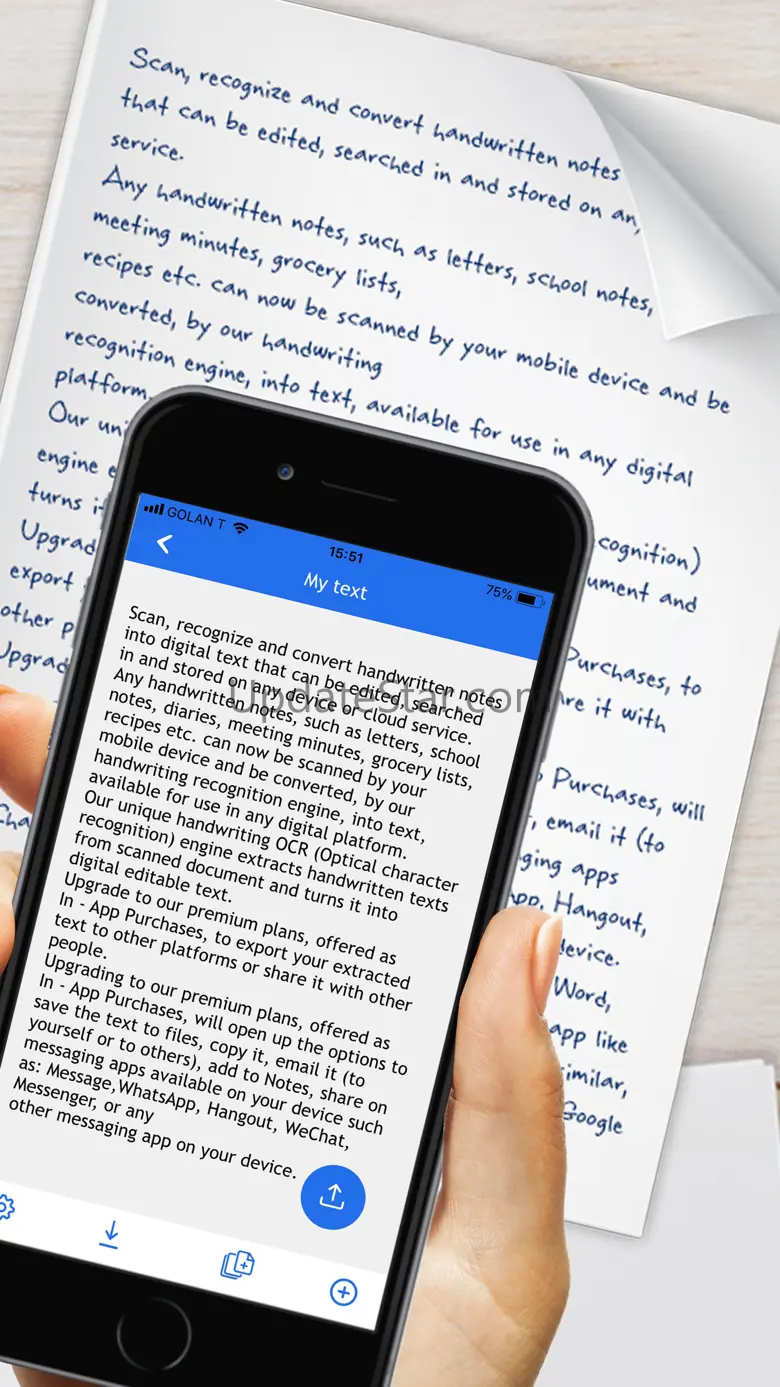 Scan, recognize and convert handwritten notes
that can be edited, searched in and stored on an,
service.
Any handwritten notes, such as letters, school notes,
meeting minutes, grocery lists,
recipes etc. can now be scanned by your mobile device and be
converted, by our handwriting
recognition engine, into text, available for use in any digital
platform.
Our uni
engine e
turns i
Upgrad
export
other p
Upgrad
Cha
cognition)
ument and
Purchases, to
are it with
Purchases, will
, email it (to
ging apps
App, Hangout,
device.
Word,
app like
similar,
Google
GOLAN T
15:51
75%
My text
Scan, recognize and convert handwritten notes
into digital text that can be edited, searched
in and stored on any device or cloud service.
Any handwritten notes, such as letters, school
notes, diaries, meeting minutes, grocery lists,
recipes etc. can now be scanned by your
mobile device and be converted, by our
handwriting recognition engine, into text,
available for use in any digital platform.
Our unique handwriting OCR (Optical character
recognition) engine extracts handwritten texts
from scanned document and turns it into
digital editable text.
Upgrade to our premium plans, offered as
In - App Purchases, to export your extracted
text to other platforms or share it with other
people.
Upgrading to our premium plans, offered as
In - App Purchases, will open up the options to
save the text to files, copy it, email it (to
yourself or to others), add to Notes, share on
messaging apps available on your device such
as: Message,WhatsApp, Hangout, WeChat,
Messenger, or any
other messaging app on your device.
UpdateStar.com